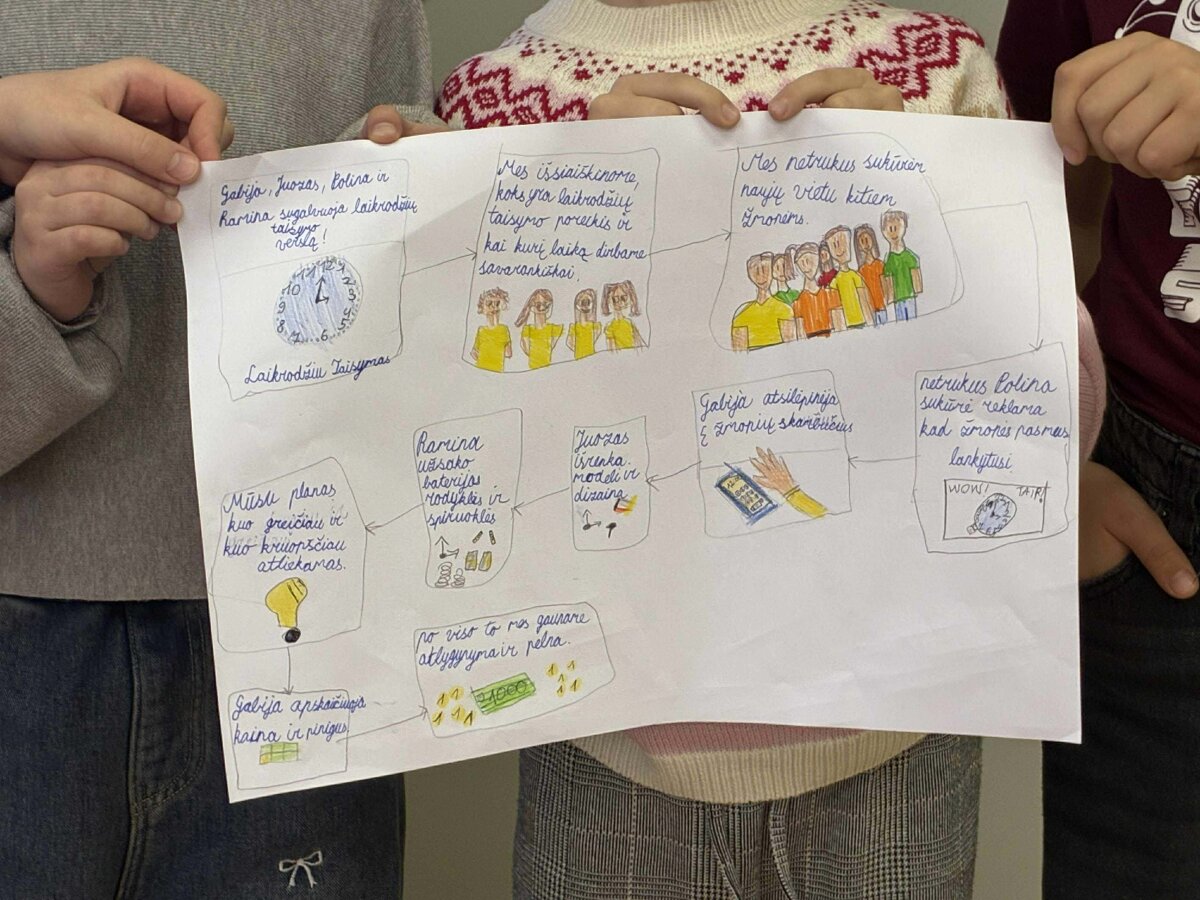 Gabija, Juozas, Polina ir
Ramina sugalvuoja laikrodžių
taisymo
verslą!
10 11 12 1 2 3 4 5 6 7 8 9
Laikrodžiu Taisymas
Mes išsiaiškinome,
koks yra laikrodžių
taisymo poreikis ir
kai kurį laiką dirbame
savarankiškai.
Mes netrukus sukūrėm
naujų vietu kitiem
žmonėms.
netrukus Polina
sukūrė reklama
kad žmonės pas mus
lankytusi
WOW!
Gabija atsiliepinėja
į žmonių skambučius
Juozas
išrenka
modeli ir
dizainą
Ramina
užsako
baterijas
rodyklės ir
spiruoklės
Mūsu planas
kuo greičiau ir
kuo kruopščiau
atliekamas.
Gabija apskaičiuoja
kaina ir pinigus
po viso to mes gauname
atlygynyma ir pelna.
1 1 1 1 1
1000
1 1 1 1